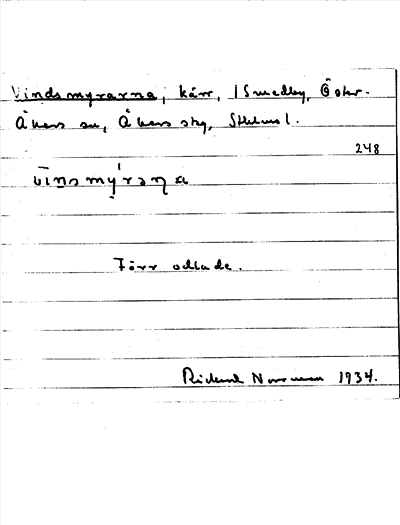 Vindsmyrarna, kärr, 1 Smedby, Öster-
Åkers sn, Åkers skg, Sthlms l.
248
vi̅nsmỵ́rəṇa
Förr odlade.
Rickard Norrman 1934.